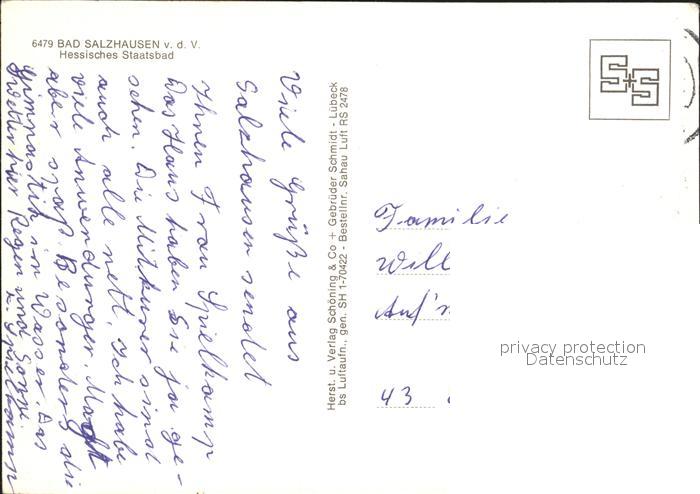 6479 BAD SALZHAUSEN v. d. V.
Hessisches Staatsbad
Viele Grüße aus
Salzhausen sendet
Ihnen Frau Spielkamp
Das Haus haben Sie ja ge-
sehen. Die Mitkurer sind
auch alle nett. Ich habe
viele Anwendungen. Macht
aber spaß. Besonders die
Gimnastik im Wasser. Das
Wetter hier Regen und Sonne.
Spielkamp
Herst. u. Verlag Schöning & Co + Gebrüder Schmidt - Lübeck
bs Luftaufn., gen. SH 1-70422 - Bestellnr. Sahau Luft RS 2478
S+S
Familie
Will
Auf'm
43
privacy protection
Datenschutz